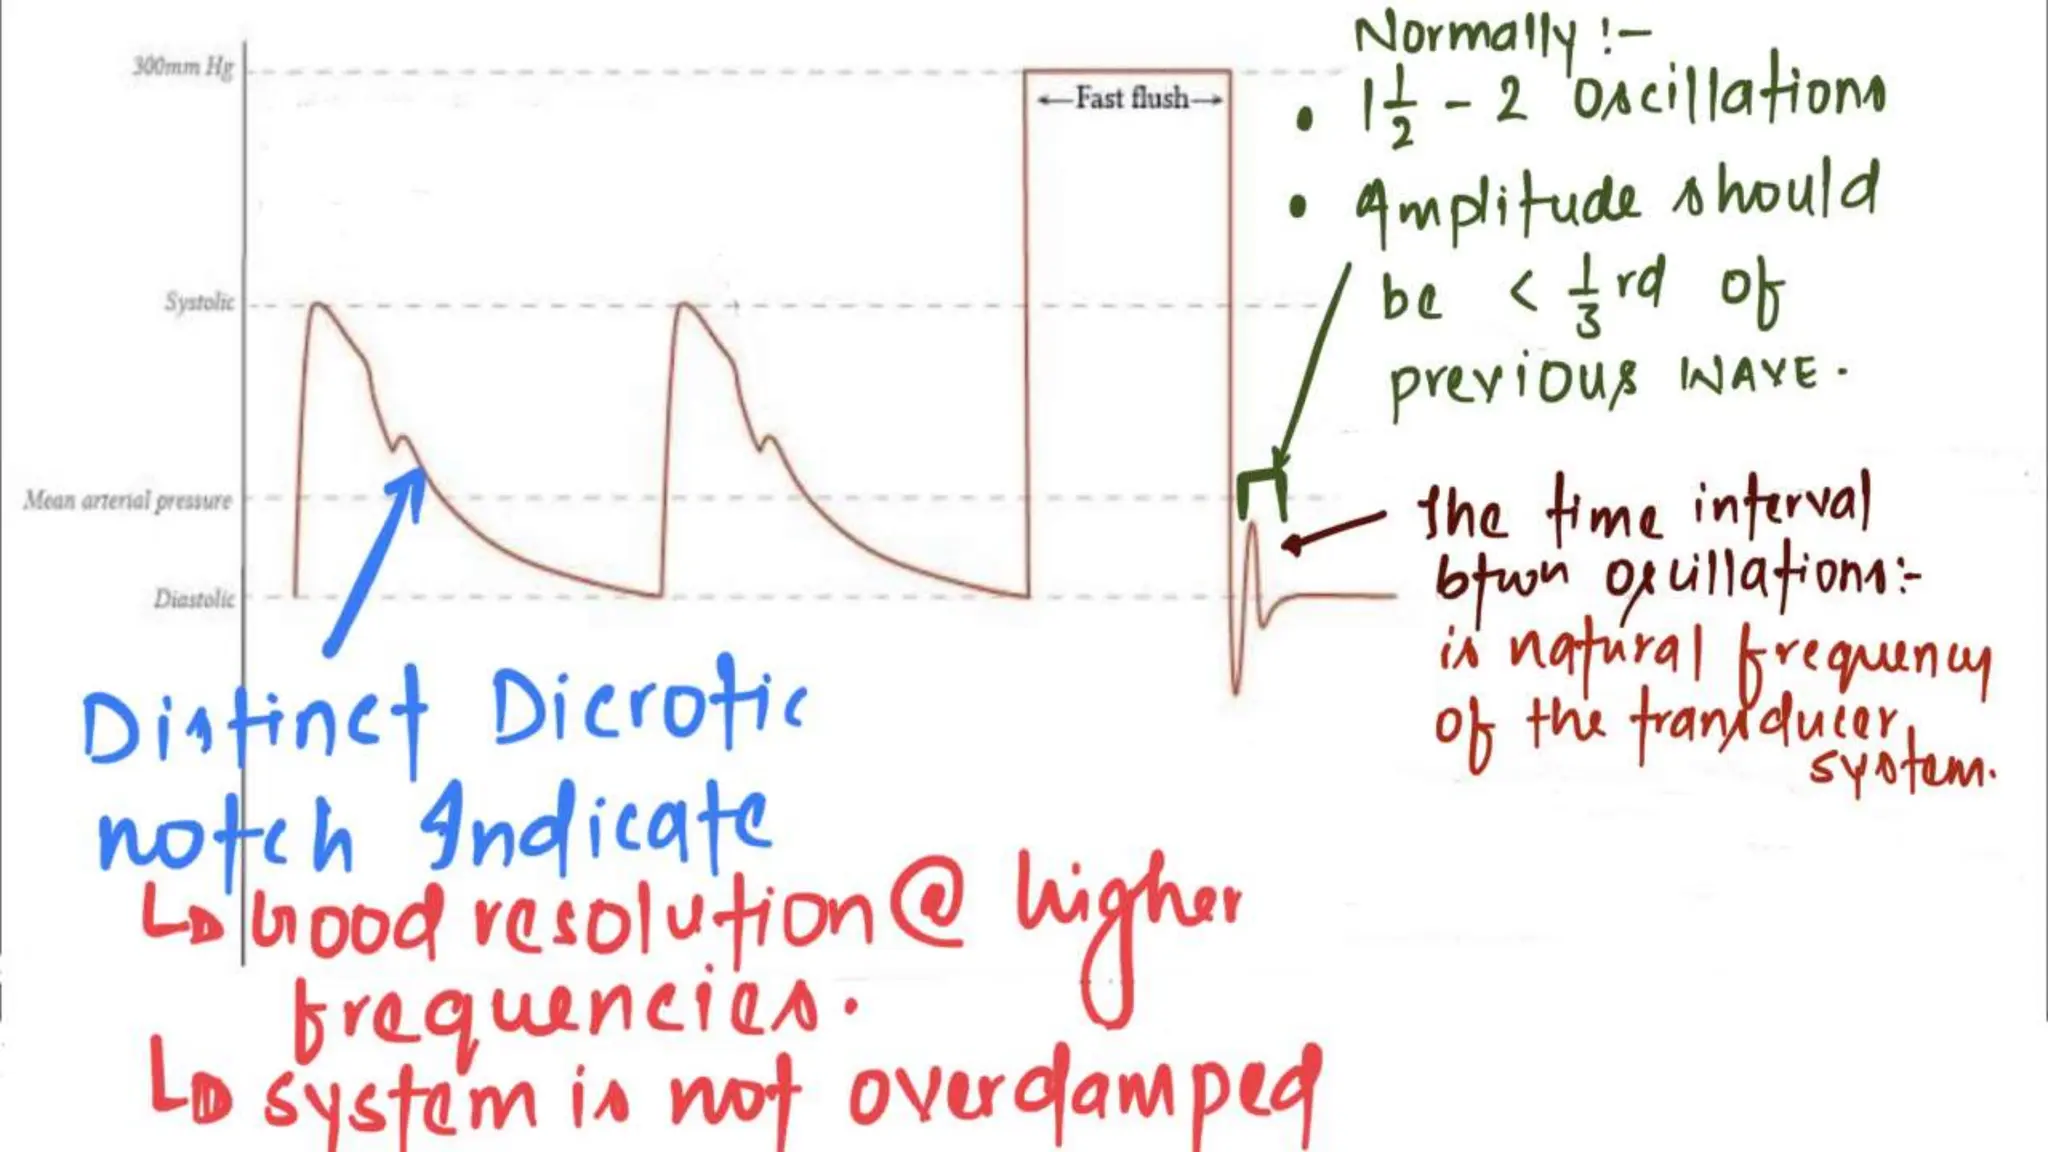 300mm Hg
Systolic
Mean arterial pressure
Diastolic
←Fast flush→
Normally :-
• 1 1/2 - 2 Oscillations
• Amplitude should
be < 1/3 rd of
previous WAVE.
The time interval
btwn oscillations:-
is natural frequency
of the transducer
system.
Distinct Dicrotic
notch Indicate
↳ Good resolution @ higher
frequencies.
↳ system is not overdamped